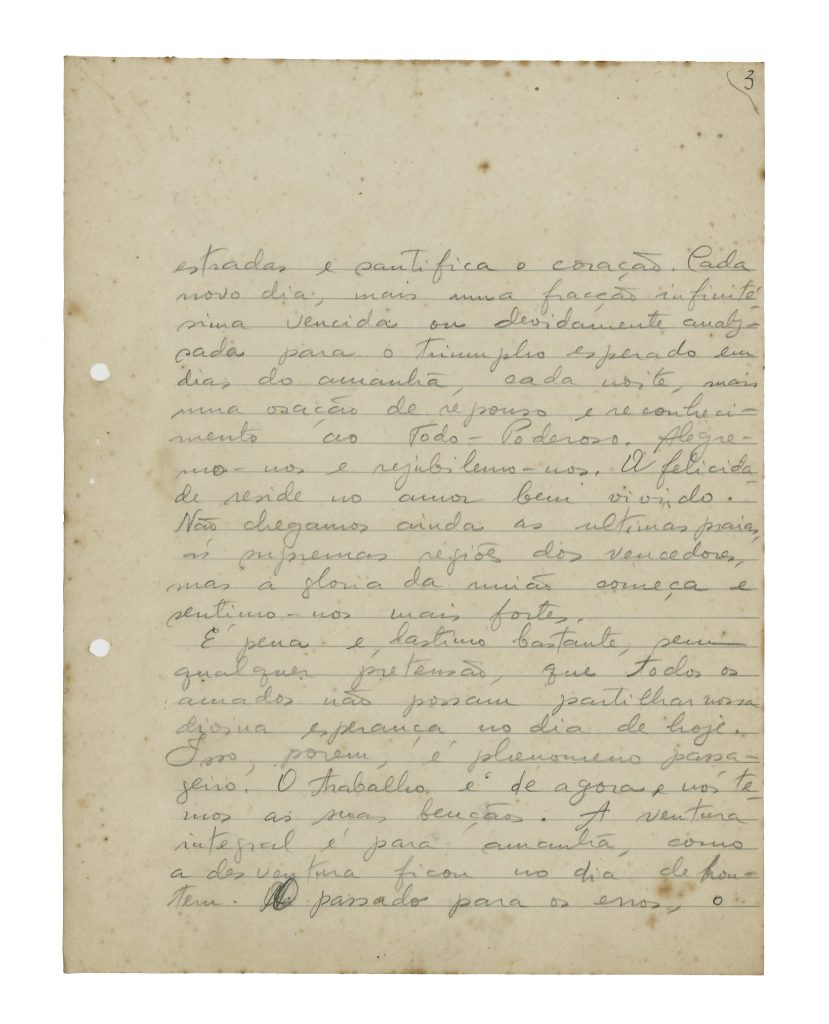 3
estradas e santifica o coração. Cada
novo dia, mais uma fracção infinité-
sima vencida ou devidamente analy-
sada para o triumpho esperado em
dias do amanhã, cada noite, mais
uma oração de repouso e reconheci-
mento ao Todo-Poderoso. Alegre-
mo-nos e rejubilemo-nos. A felicida-
de reside no amor bem vivido.
Não chegamos ainda as ultimas praias,
ás supremas regiões dos vencedores,
mas a gloria da união começa e
sentimo-nos mais fortes.
É pena e, lastimo bastante, sem
qualquer pretensão, que todos os
amados não possam partilhar nossa
divina esperança no dia de hoje.
Isso, porem, é phenomeno passa-
geiro. O trabalho é de agora e nós te-
mos as suas bençãos. A ventura
integral é para amanhã, como
a desventura ficou no dia de hon-
tem. O passado para os erros, o